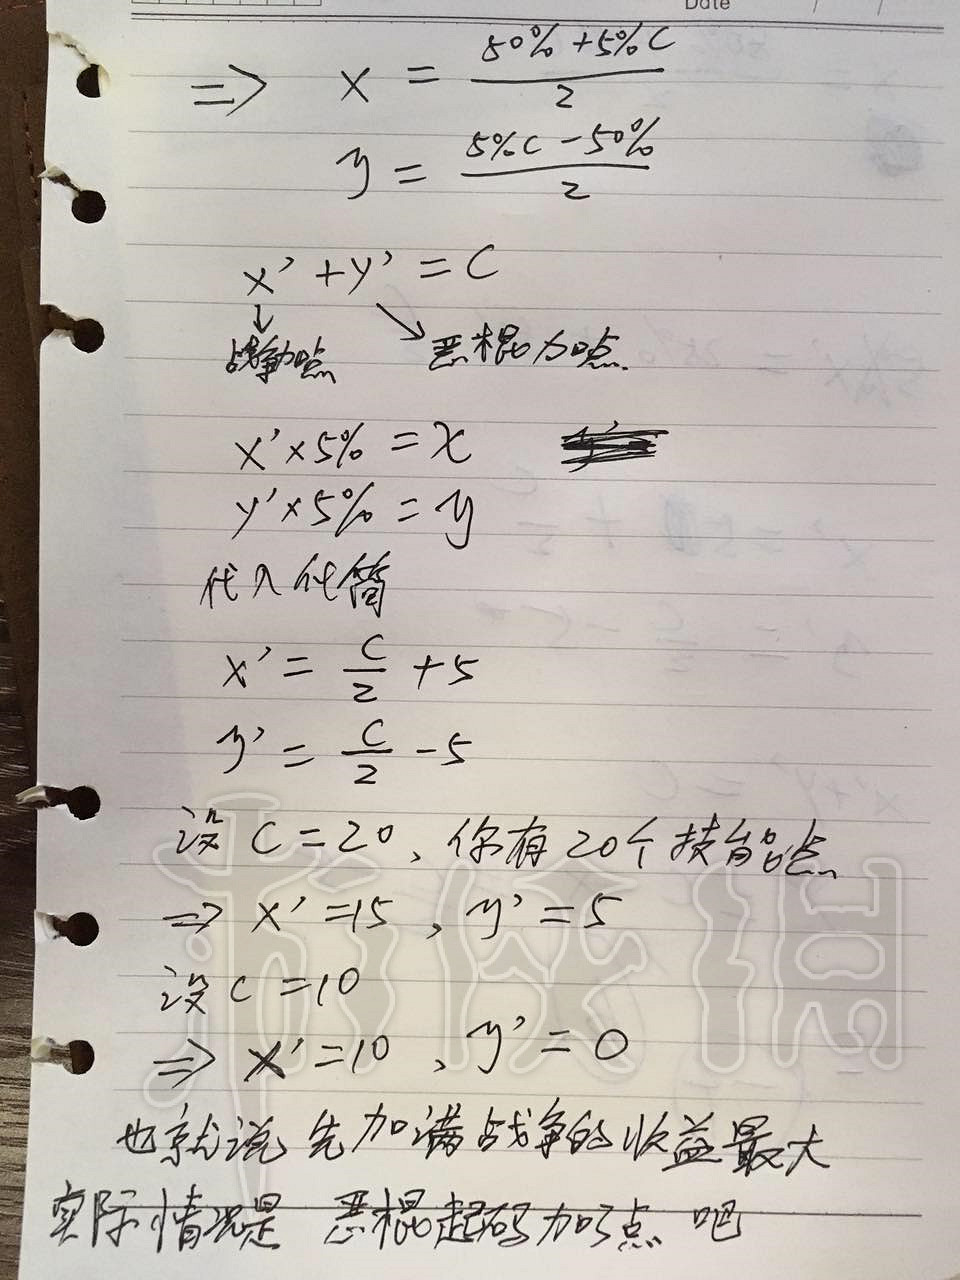 Date
⇒ x = (50% + 5%C)/2
y = (5%C - 50%)/2
x' + y' = C
战争加点 恶棍加点
x' × 5% = x
y' × 5% = y
代入化简
x' = C/2 + 5
y' = C/2 - 5
设 C = 20、你有20个技能点
⇒ x' = 15 , y' = 5
设 C = 10
⇒ x' = 10 , y' = 0
也就说先加满战争的收益最大
实际情况是 恶棍起码加5点 吧